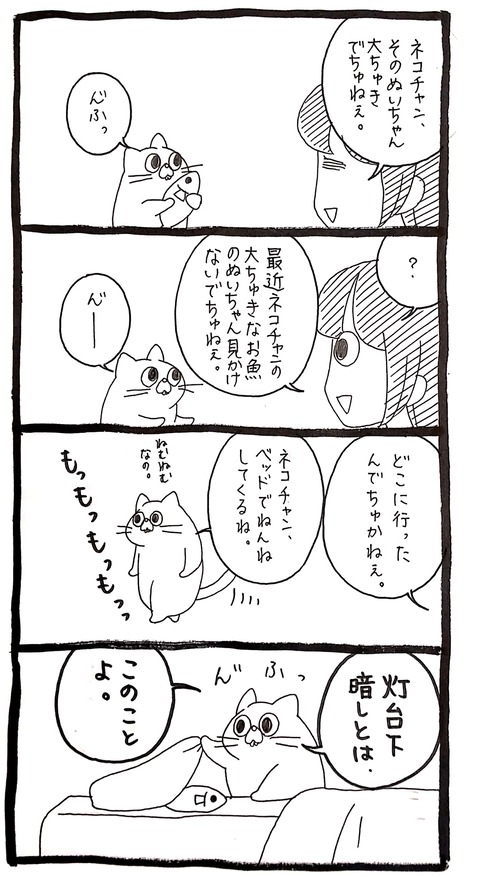 ネコチャン、
そのぬいちゃん
大ちゅき
でちゅねぇ。
んふっ
?
最近ネコチャンの
大ちゅきなお魚
のぬいちゃん見かけ
ないでちゅねぇ。
んー
どこに行った
んでちゅかねぇ。
ネコチャン、
ベッドでねんね
してくるね。
ねむねむ
なの。
もっもっもっもっっ
灯台下
暗しとは、
んふっ
このこと
よ。